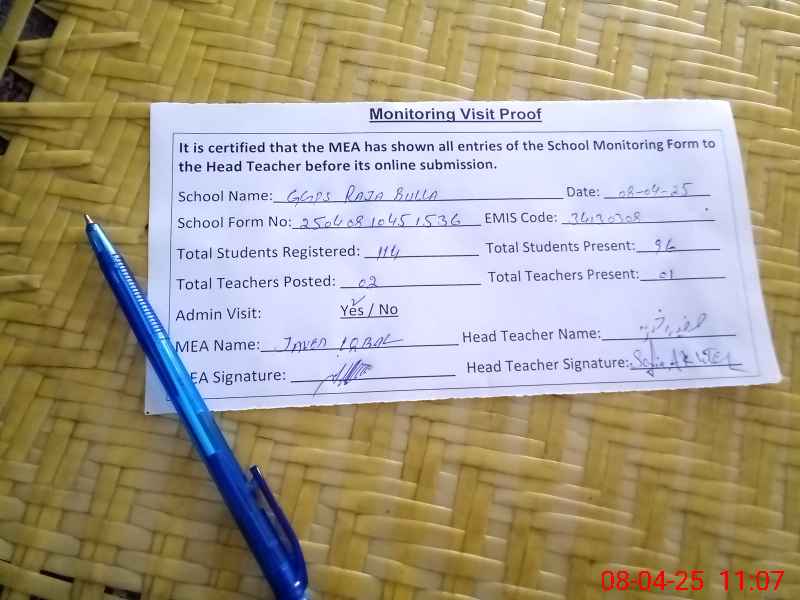 Monitoring Visit Proof
It is certified that the MEA has shown all entries of the School Monitoring Form to
the Head Teacher before its online submission.
School Name: GGPS RAJA BULLA Date: 08-04-25
School Form No: 25040810451536 EMIS Code: 34130308
Total Students Registered: 114 Total Students Present: 96
Total Teachers Posted: 02 Total Teachers Present: 01
Admin Visit: Yes / No
MEA Name: JAVED IQBAL Head Teacher Name:
EA Signature: Head Teacher Signature:
08-04-25 11:07